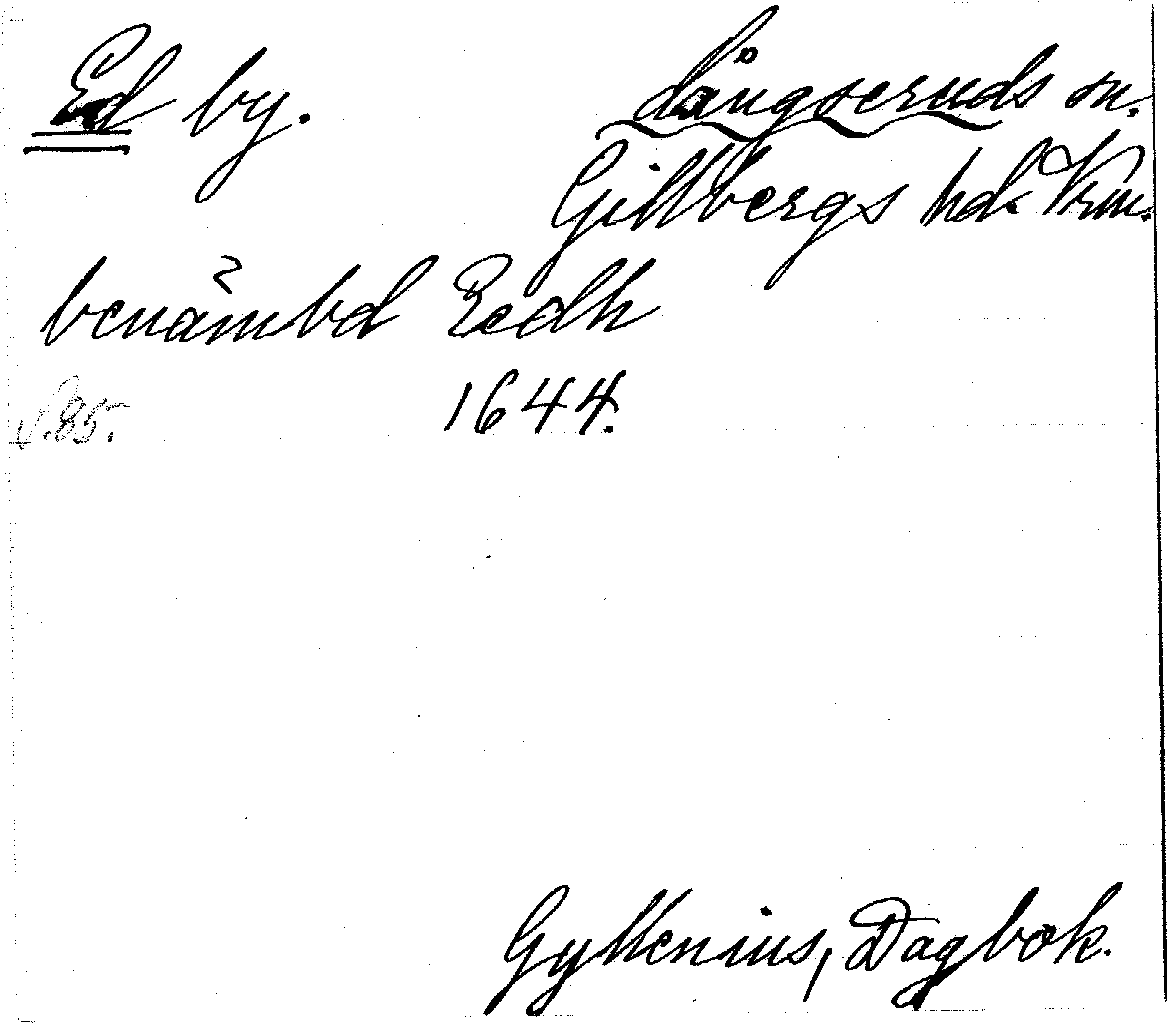 Ed by.
Långseruds sn.
Gillbergs hd. Vrm.
benämbd Eedh
S. 85. 1644.
Gyllenius, Dagbok.